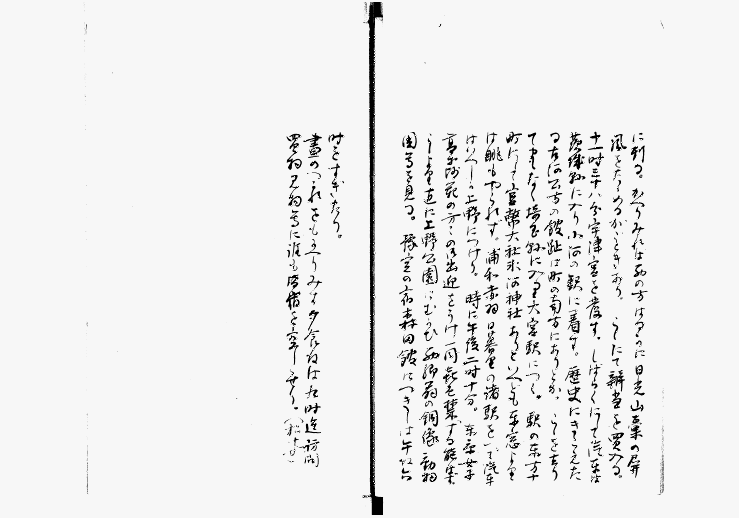 に到る。かへりみれば西の方はるかに日光山業の屏
風をたてめぐるがごときあり。こゝにて辨当を買入る。
十一時三十八分宇津宮を発す。しばらくにして汽車は
茨城県に入り小河の駅に着す。歴史にきこえた
る古河公方の館趾は町の南方にありとか。こゝを去り
てまもなく埼玉県に入り大宮駅につく。駅の东方十
町にして官幣大社氷河神社ありといへども车窓より
は眺もやられず。浦和赤羽日暮里の諸駅をへて汽车
はいよ〳〵上野につけり。時に午後二時十分。东京女子
高等師範の方々の御出迎をうけ一同
こゝより直に上野公園にむかひ西郷翁の銅像動物
園等を見る。豫定の宿森田館につきしは午後六
時をすぎたり。
晝のつかれをもかへりみず夕食后は九時迄訪問
買物見物等に誰も皆宿を空しうせり。